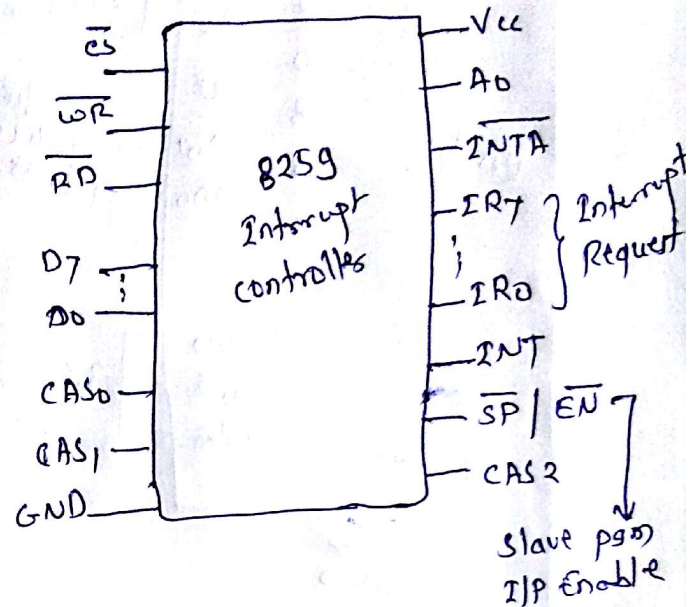 C̅S̅
W̅R̅
R̅D̅
D7
D0
CAS0
CAS1
GND
8259
Interrupt
controller
Vcc
A0
I̅N̅T̅A̅
IR7
IR0
Interrupt
Request
INT
S̅P̅ / E̅N̅
CAS2
Slave pgm
I/P Enable